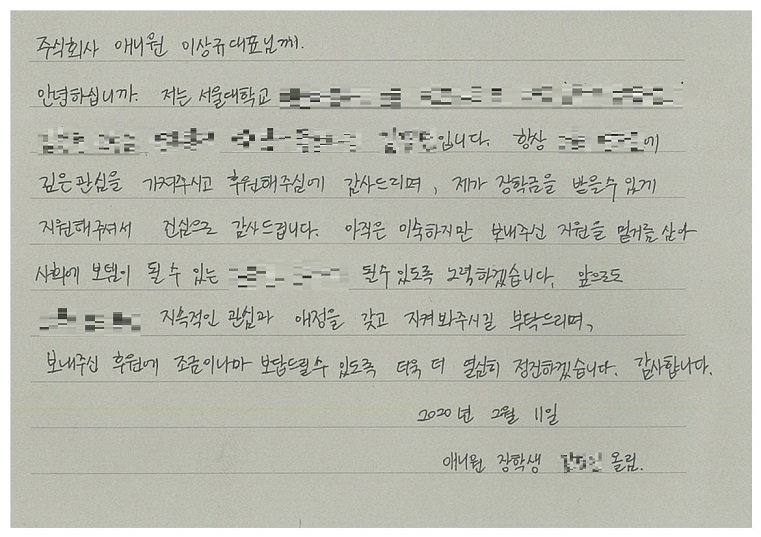 주식회사 애니원 이상규대표님께.
안녕하십니까. 저는 서울대학교
입니다. 항상 에
깊은관심을 가져주시고 후원해주심에 감사드리며, 제가 장학금을 받을수 있게
지원해주셔서 진심으로 감사드립니다. 아직은 미숙하지만 보내주신 지원을 밑거름 삼아
사회에 보탬이 될 수 있는 될수 있도록 노력하겠습니다. 앞으로도
지속적인 관심과 애정을 갖고 지켜봐주시길 부탁드리며,
보내주신 후원에 조금이나마 보답드릴수 있도록 더욱 더 열심히 정진하겠습니다. 감사합니다.
2020년 2월 11일
애니원 장학생 올림.